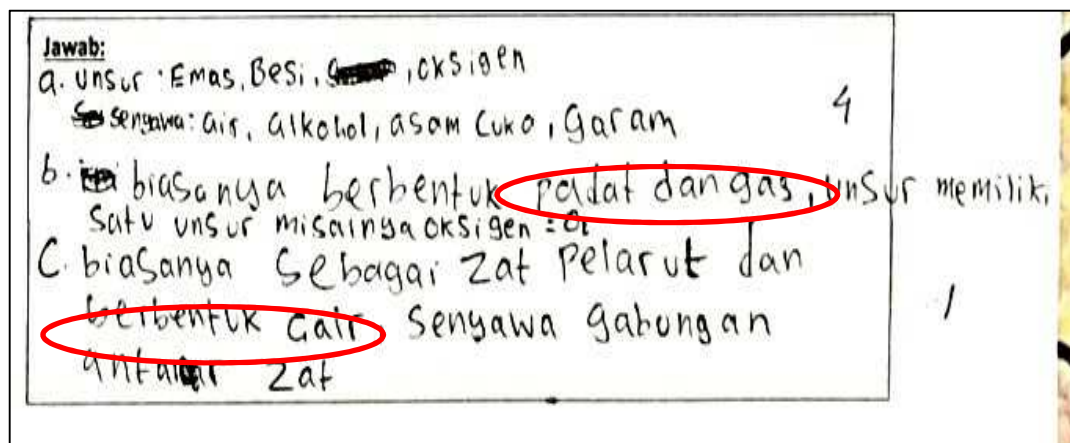 Jawab:
a. unsur : Emas, Besi, , oksigen
senyawa: air, alkohol, asam cuka, garam
4
b. biasanya berbentuk padat dan gas, unsur memiliki
satu unsur misalnya oksigen =
C. biasanya sebagai zat pelarut dan
berbentuk cair senyawa gabungan
1
antar zat